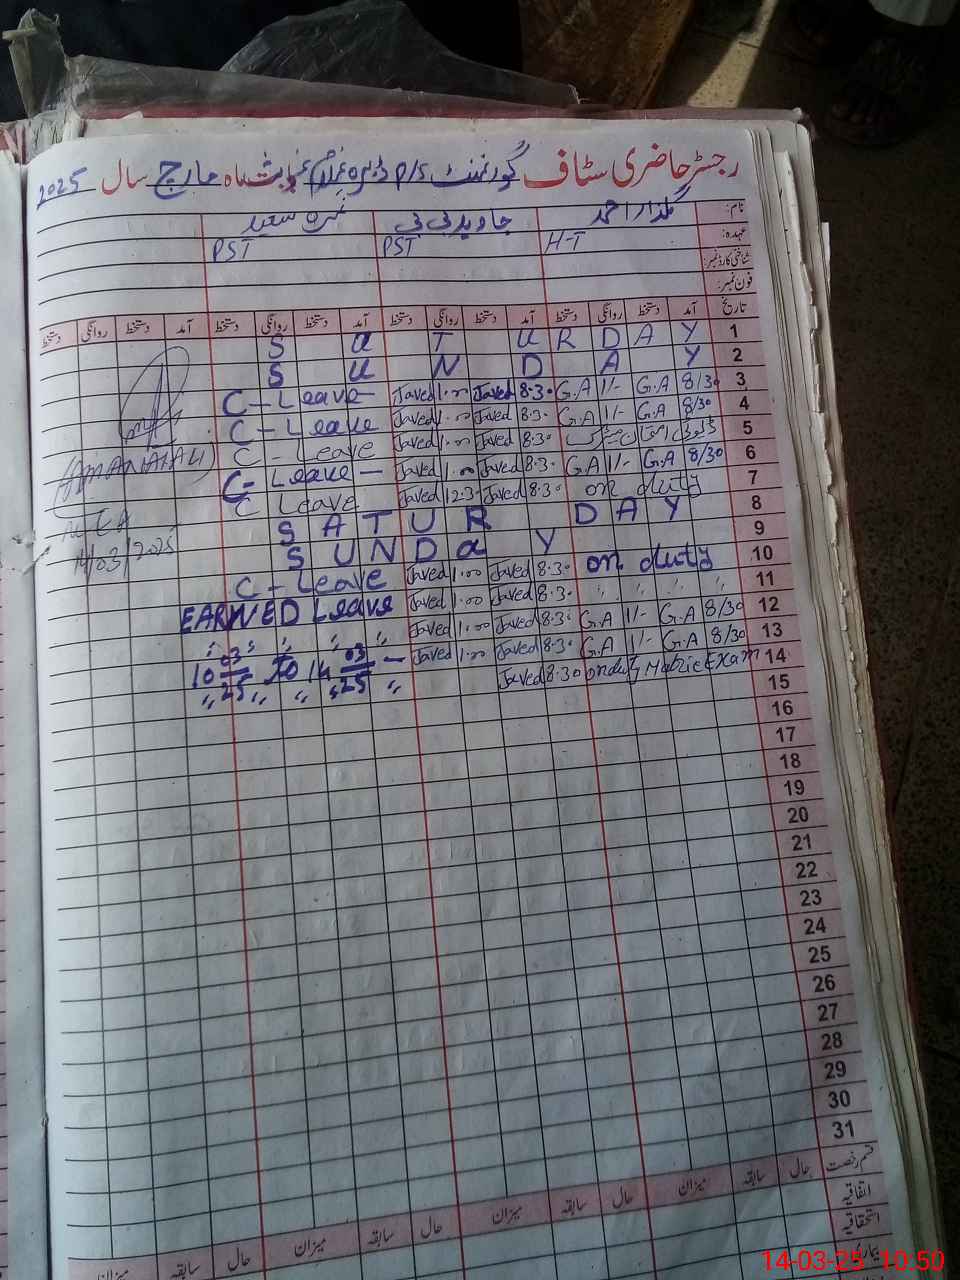 رجسٹر حاضری سٹاف گورنمنٹ P/S ڈیرہ غلام غوث بابت ماہ مارچ سال 2025
نام: گلزار احمد جاوید بی بی نمرہ سعید
عہدہ: H-T PST PST
شناختی کارڈ نمبر:
فون نمبر:
تاریخ آمد دستخط روانگی دستخط آمد دستخط روانگی دستخط آمد دستخط روانگی دستخط آمد دستخط روانگی دستخط
S a T U R D A Y 1
S U N D A Y 2
C - Leave - Javed 1.00 Javed 8.30 G.A 1/- G.A 8/30 3
C - Leave Javed 1.00 Javed 8.30 G.A 1/- G.A 8/30 4
C - Leave Javed 1.00 Javed 8.30 ڈیوٹی امتحان میٹرک 5
C - Leave - Javed 1.00 Javed 8.30 G.A 1/- G.A 8/30 6
C Leave Javed 12.30 Javed 8.30 on duty 7
S A T U R D A Y 8
S U N D a Y 9
C - Leave Javed 1.00 Javed 8.30 on duty 10
EARNED Leave Javed 1.00 Javed 8.30 " " " " 11
" " " " " Javed 1.00 Javed 8.30 G.A 1/- G.A 8/30 12
10 03/25 To 14 03/25 - Javed 1.00 Javed 8.30 G.A 1/- G.A 8/30 13
" " " " " Javed 8.30 onduty Matric Exam 14
15
16
17
18
19
20
21
22
23
24
25
26
27
28
29
30
31
(AMANAT ALI)
14/03/2025
قسم رخصت حال سابقہ میزان حال سابقہ میزان حال سابقہ میزان حال سابقہ میزان
اتفاقیہ
استحقاقیہ
بیماری
14-03-25 10:50